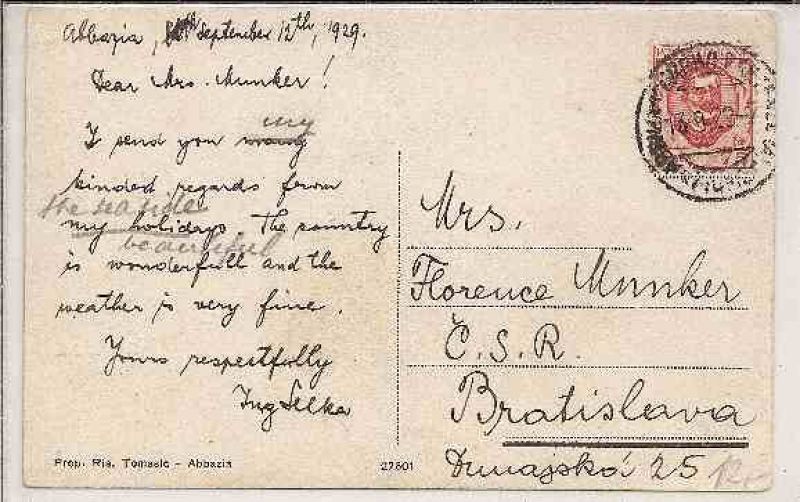 Abbazia, September 12th, 1929.
Dear Mrs. Munker!
my
I send you many
kinded regards form
the sea side
my holidays. The country
beautiful
is wonderfull and the
weather is very fine.
Yours respectfully
Ing Selka
Prop. Ria. Tomasic - Abbazia
27801
Mrs.
Florence Munker
Č.S.R.
Bratislava
Dunajská 25